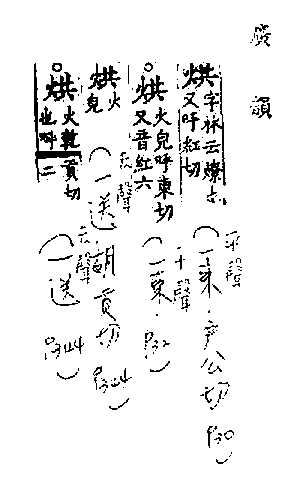 廣韻
烘字林云燎也又呼紅切
(一東·戶公切 P30)
平聲
○烘火皃呼東切又音紅六
(一東· P32)
平聲
烘火皃
(一送胡貢切 P344)
去聲
○烘火乾也呼貢切二
(一送 P344)
去聲